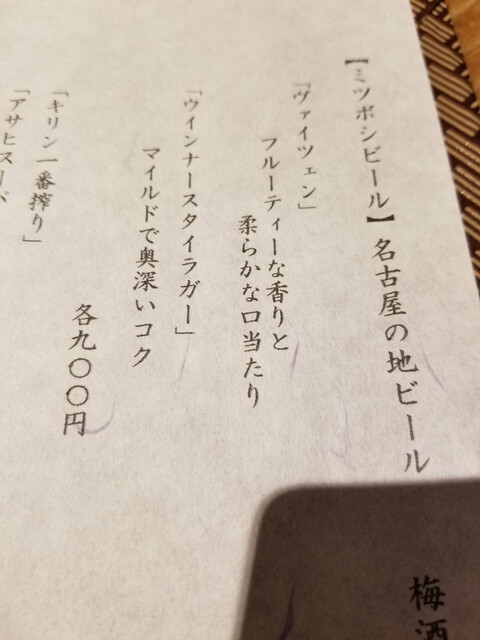 【ミツボシビール】名古屋の地ビール
「ヴァイツェン」
フルーティーな香りと
柔らかな口当たり
「ウィンナースタイラガー」
マイルドで奥深いコク
各九〇〇円
「キリン一番搾り」
「アサヒスード
梅酒